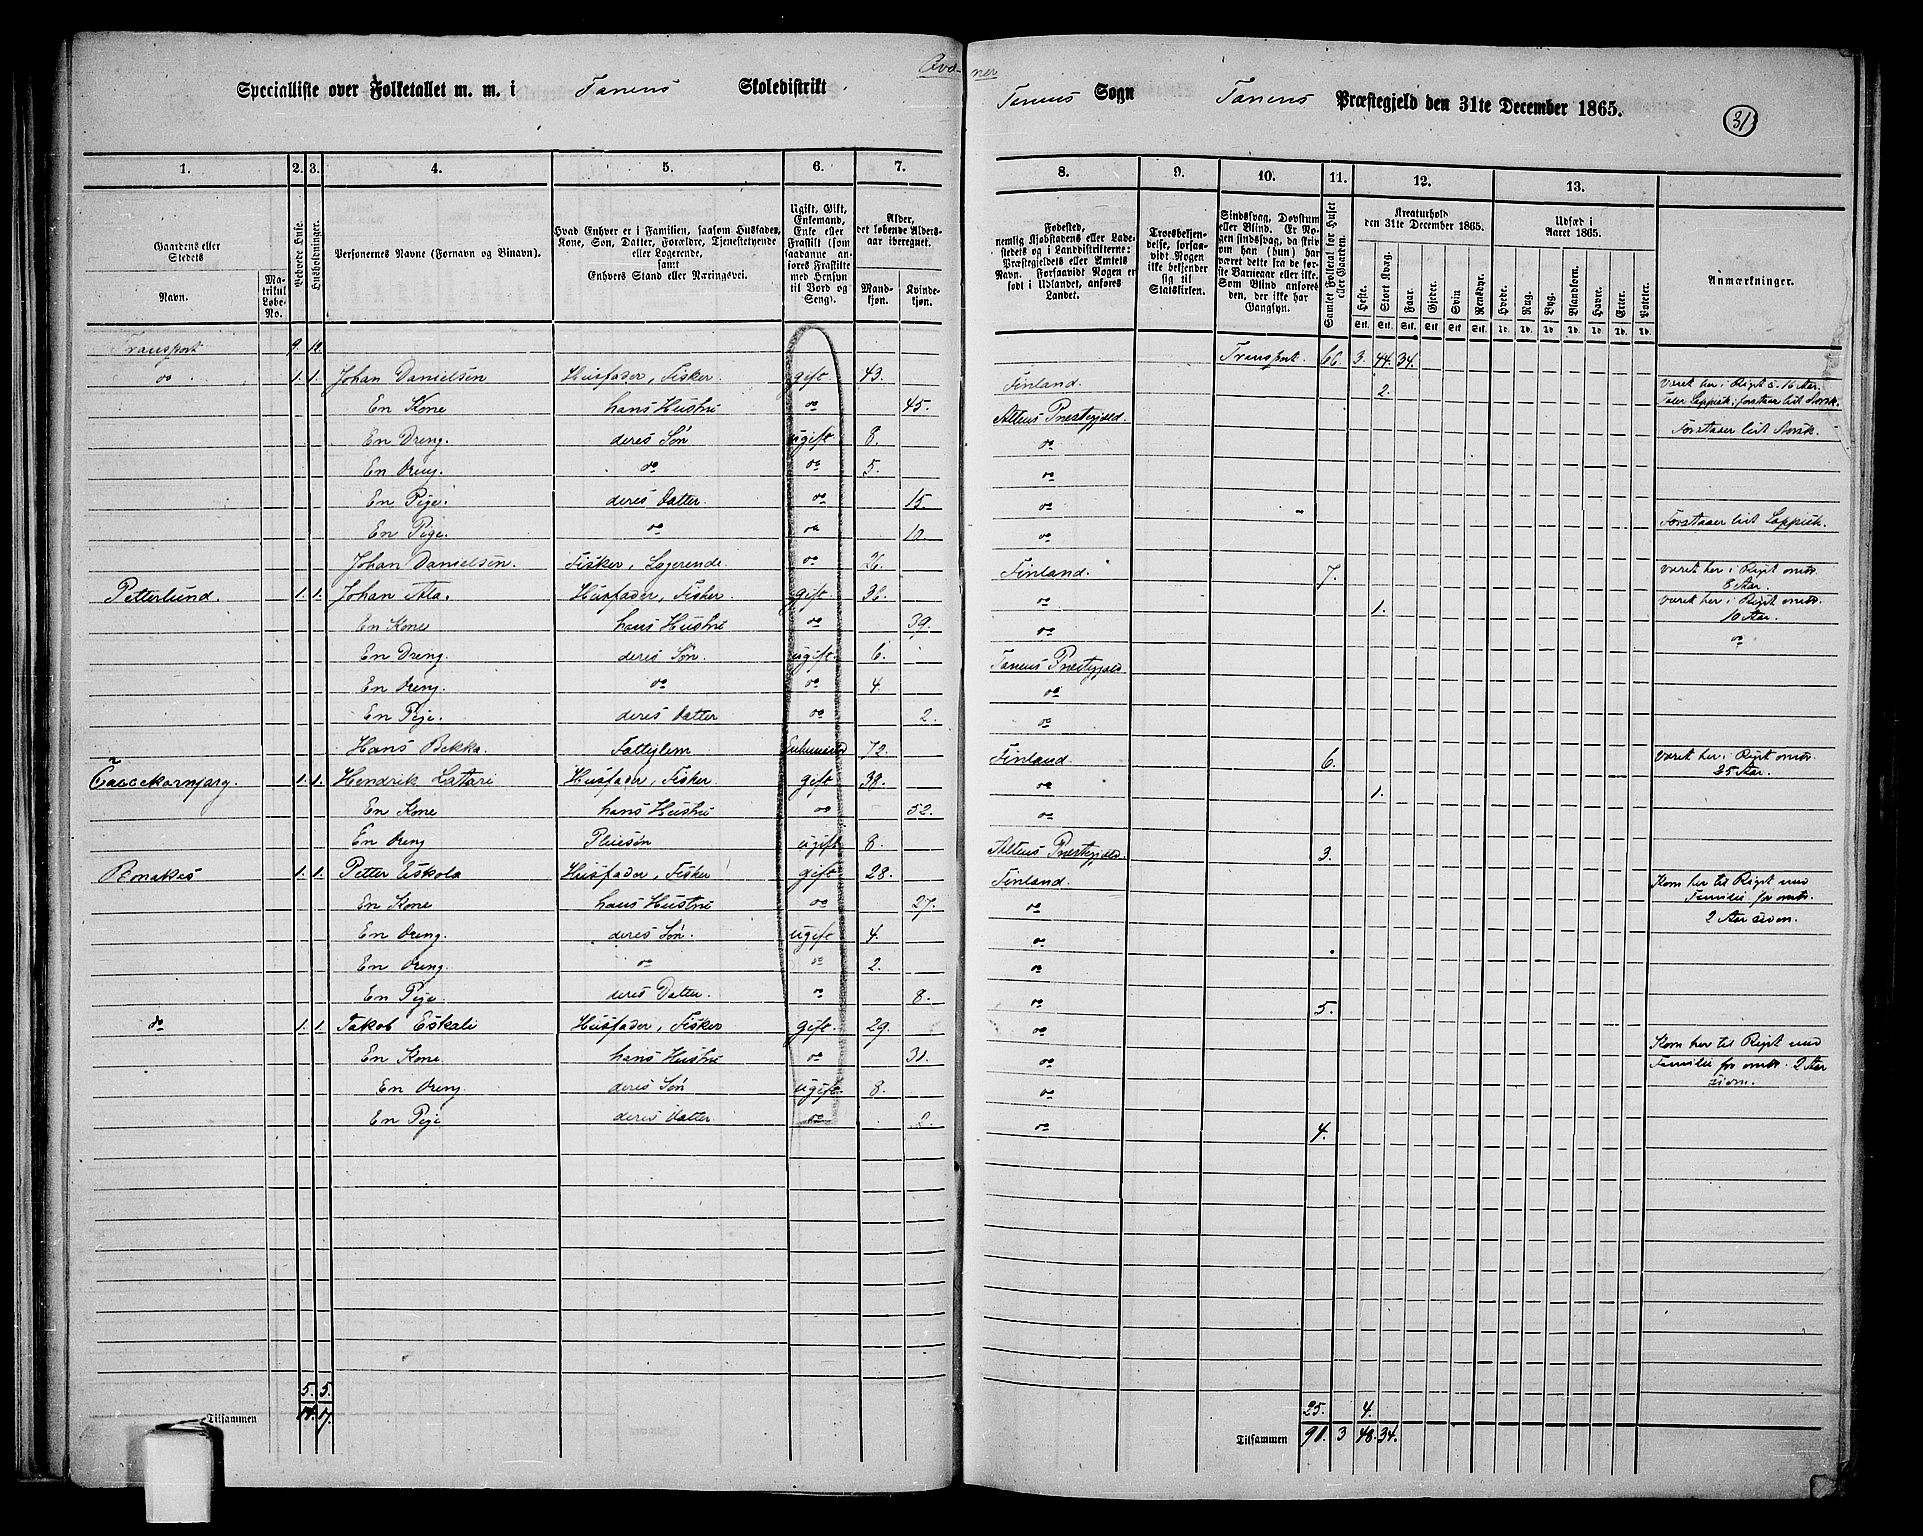 Qvæner
Specialliste over Folketallet m. m. i Tanens Skoledistrikt
Tanens Sogn Tanens Præstegjeld den 31te December 1865.
31
1. 2. 3. 4. 5. 6. 7. 8. 9. 10. 11. 12. 13.
Gaardens eller Stedets Navn. Matrikul Løbe-No.
Beboede Huse.
Husholdninger.
Personernes Navne (Fornavn og Binavn).
Hvad Enhver er i Familien, saasom Husfader, Kone, Søn, Datter, Forældre, Tjenestetyende eller Logerende, samt Enhvers Stand eller Næringsvei.
Ugift, Gift, Enkemand, Enke eller Fraskilt (som saadanne anføres Fraskilte med Hensyn til Bord og Seng).
Alder, det løbende Aldersaar iberegnet. Mandkjøn. Kvindekjøn.
Fødested, nemlig Kjøbstadens eller Ladestedets og i Landdistrikterne: Præstegjeldets eller Amtets Navn. Forsaavidt Nogen er født i Udlandet, anføres Landet.
Troesbekjendelse, forsaavidt Nogen ikke bekjender sig til Statskirken.
Sindssvag, Døvstum eller Blind. Er Nogen sindssvag, da skrives, om han (hun) har været dette fra de første Barneaar eller ikke. Som Blind anføres den, der ikke har Gangsyn.
Samlet Folketal for Huset eller Gaarden.
Kreaturhold den 31te December 1865.
Heste. Stort Kvæg. Faar. Gjeder. Svin. Rensdyr.
Udsæd i Aaret 1865.
Hvede. Rug. Byg. Blandkorn. Havre. Erter. Poteter.
Anmærkninger.
Transport 9. 12. Transport. 66 3. 44. 34.
do 1. 1. Johan Danielsen Husfader, Fisker. gift. 43. Finland. 2. været her i Riget c. 16 Aar. Taler Lappisk; forstaar lidt Norsk.
En Kone hans Hustru do 45. Altens Præstegjeld.
En Dreng. deres Søn ugift. 8. do Forstaaer lidt Norsk.
En Dreng. do do 5. do
En Pige. deres Datter. do 15. do
En Pige. do do 10. do Forstaaer lidt Lappisk.
Johan Danielsen. Fisker, Logerende. do 26. Finland. 7. været her i Riget omtr. 8 Aar.
Petterlund. 1. 1. Johan Ala. Husfader, Fisker. gift. 36. do 1. været her i Riget omtr. 10 Aar.
En Kone hans Hustru do 39. do do
En Dreng. deres Søn. ugift. 6. Tanens Præstegjeld.
En Dreng. do do 4. do
En Pige. deres Datter do 2. do
Hans Bekka. Fattiglem Enkemand 72. Finland 6. været her i Riget omtr. 35 Aar.
1. 1. Hendrik Lattari Husfader, Fisker. gift 38. do 1.
En Kone hans Hustru do 52. do
En Dreng Pleiesøn ugift 8. Altens Præstegjeld. 3.
1. 1. Petter Eskola Husfader, Fisker gift. 28. Finland. Kom her til Riget med Familie for omtr. 2 Aar siden.
En Kone hans Hustru do 27. do
En Dreng. deres Søn. ugift 4. do
En Dreng. do do 2. do
En Pige deres Datter. do 8. do 5.
do 1. 1. Jakob Eskali Husfader, Fisker gift. 29. do Kom her til Riget med Familie for omtr. 2 Aar siden.
En Kone hans Hustru do 31. do
En Dreng deres Søn ugift. 8. do
En Pige deres Datter. do 2. do 4.
5. 5. 25. 4.
Tilsammen 14. 17. Tilsammen 91. 3 48. 34.